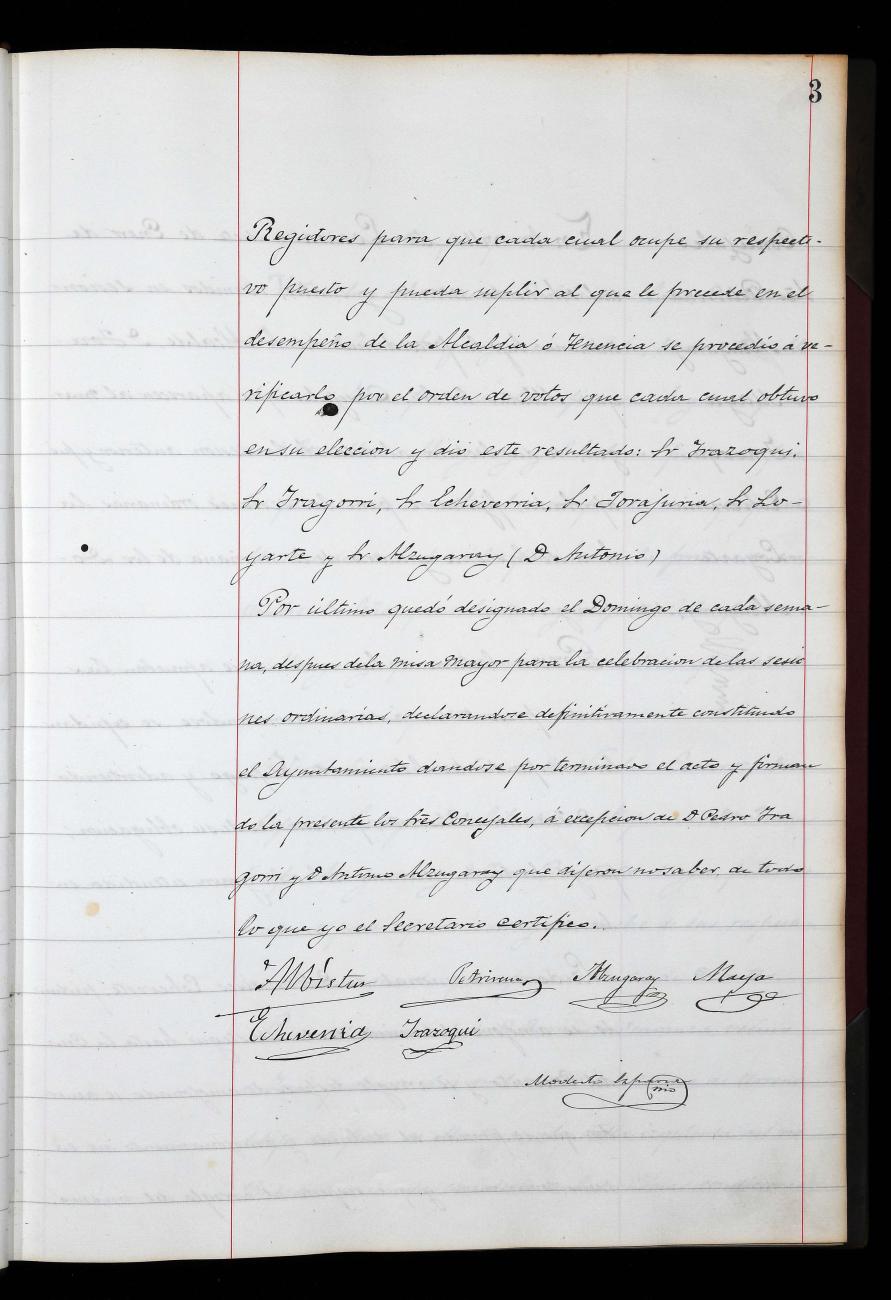 3
Regidores para que cada cual ocupe su respecti-
vo puesto y pueda suplir al que le precede en el
desempeño de la Alcaldia ó Tenencia se procedió á ve-
rificarlo por el orden de votos que cada cual obtuvo
en su eleccion y dió este resultado: Sr Irazoqui,
Sr Iragorri, Sr Echeverria, Sr Torajuria, Sr Lo-
yarte y Sr Alzugaray (D Antonio)
Por último quedó designado el Domingo de cada sema-
na, despues de la misa mayor para la celebracion de las sesio
nes ordinarias, declarandose definitivamente constituido
el Ayuntamiento dandose por terminado el acto y firman
do la presente los Sres Concejales, á excepcion de D Pedro Ira
gorri y D Antonio Alzugaray que dijeron no saber, de todo
lo que yo el Secretario certifico.
Albistur Petrirena Alzugaray Maya
Echeverria Irazoqui
Modesto